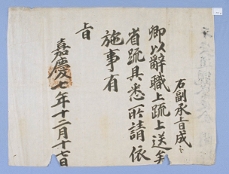 右副承旨成
卿以辭職上疏上送
省疏具悉所請依
施事有
旨
嘉慶七年十二月十七日